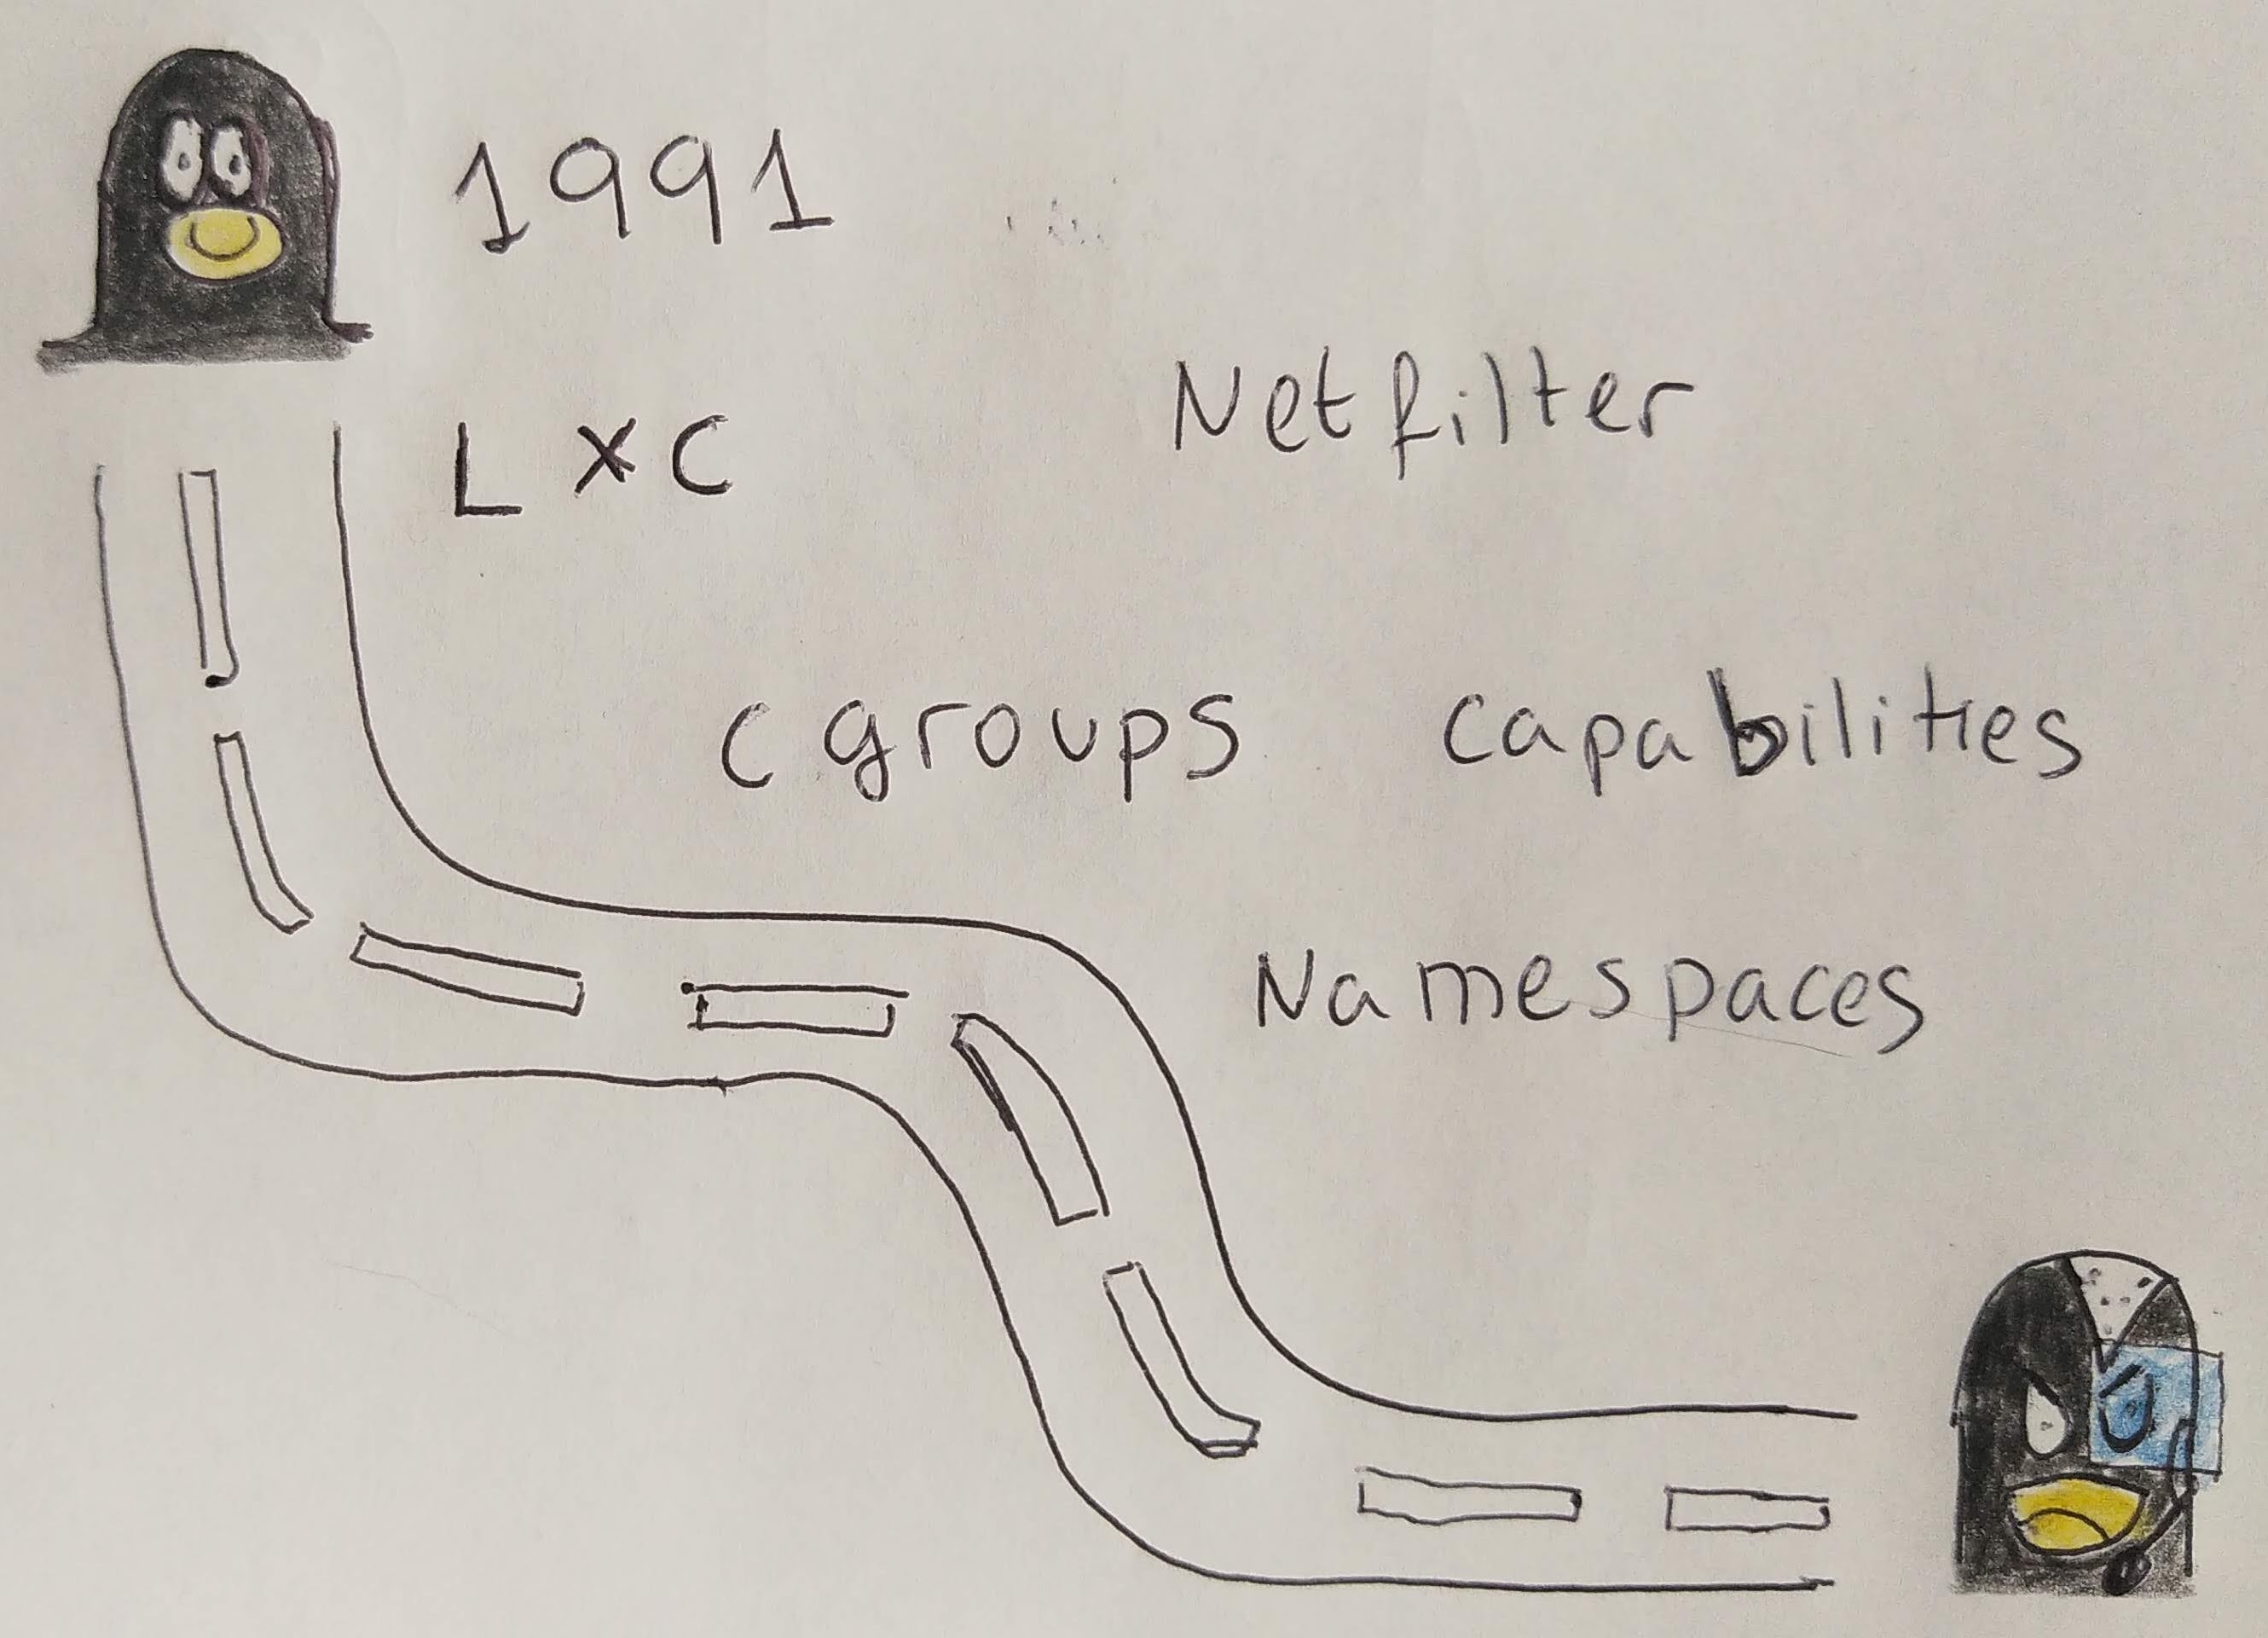 1991
Netfilter
LXC
cgroups capabilities
Namespaces